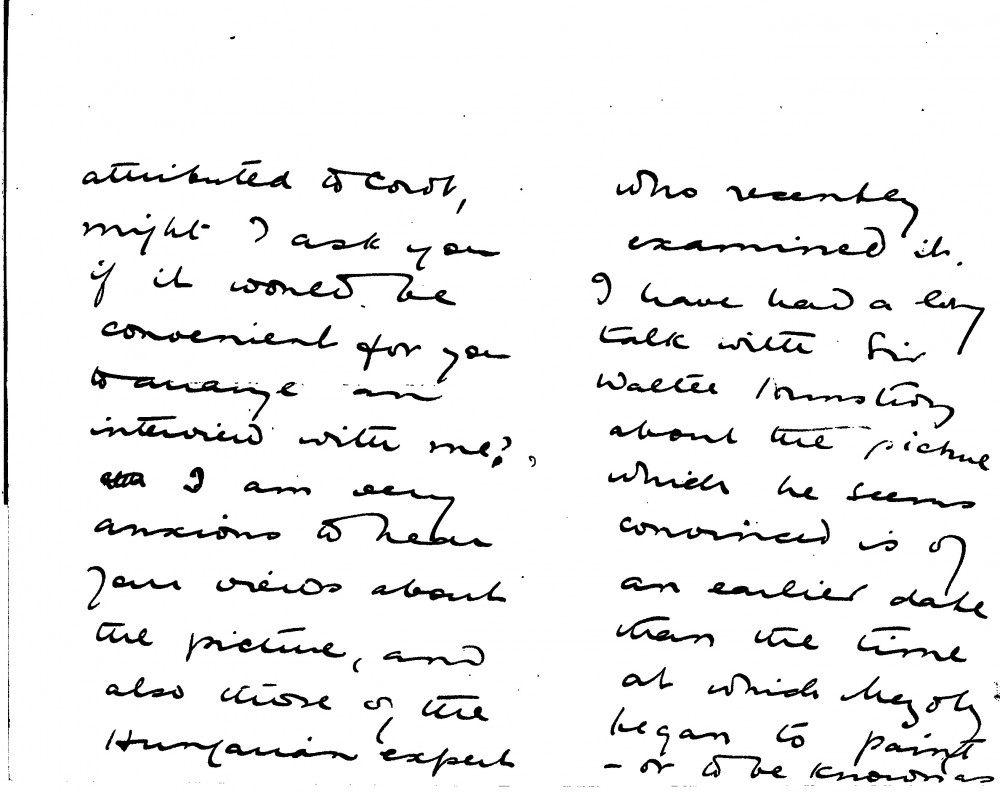 attributed to Corot,
might I ask you
if it would be
convenient for you
to arrange an
interview with me?
I am very
anxious to hear
your views about
the picture, and
also those of the
Hungarian expert
who recently
examined it.
I have had a long
talk with Sir
Walter Armstrong
about the picture
which he seems
convinced is of
an earlier date
than the time
at which Mezoly
began to paint
- or to be known as